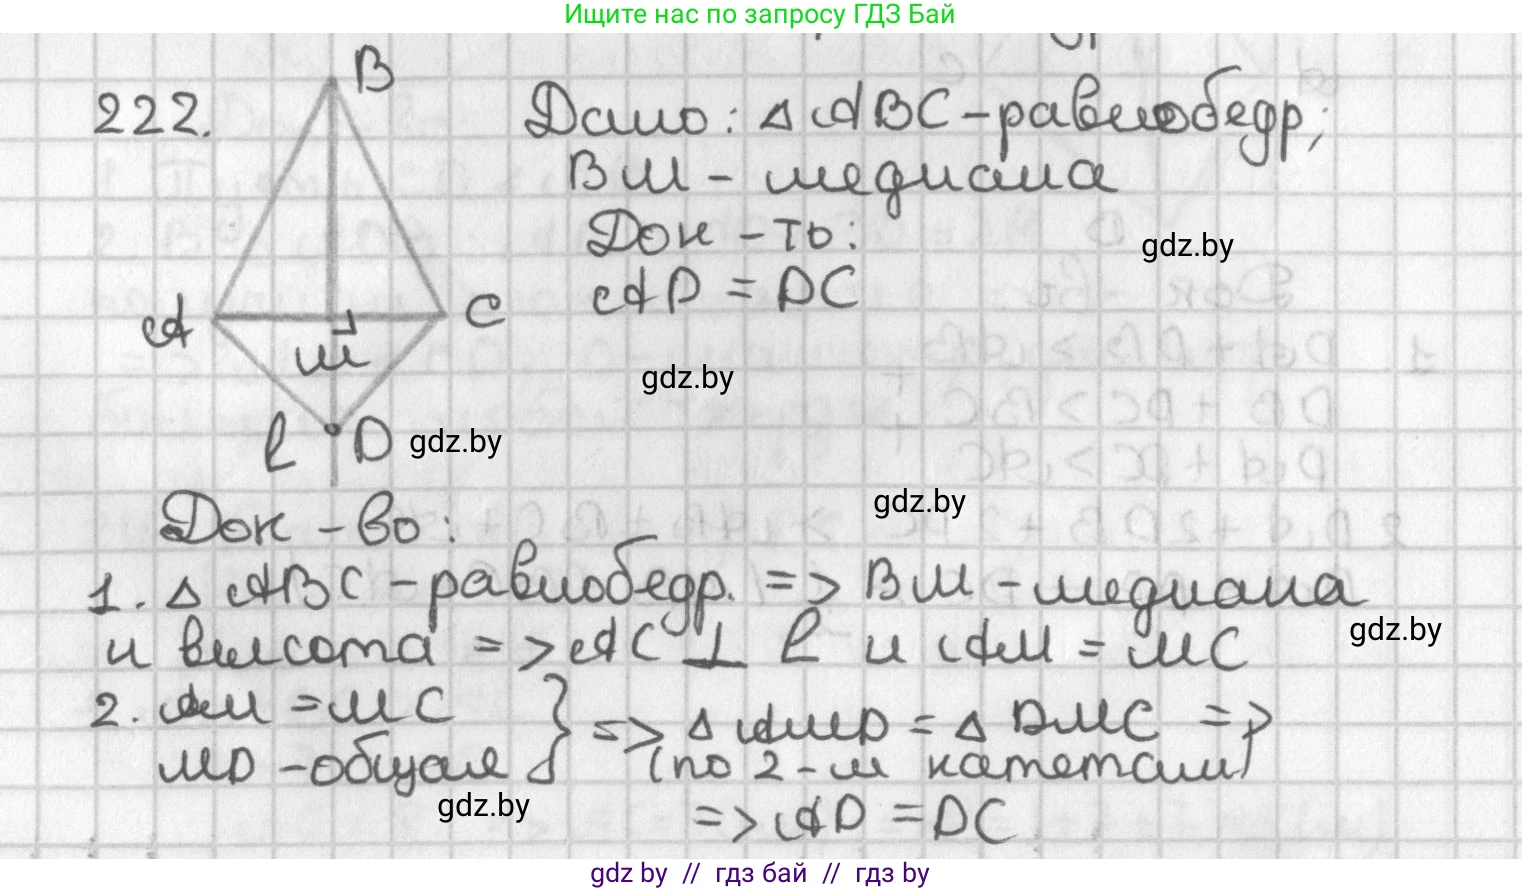 Ищите нас по запросу ГДЗ Бай
222.
B
A
C
M
l
D
Дано: △ ABC - равнобедр;
BM - медиана
Док - ть:
AD = DC
gdz.by
gdz.by
gdz.by
gdz.by
Док - во:
1. △ ABC - равнобедр. => BM - медиана
и высота => AC ⊥ l и AM = MC
gdz.by
2. AM = MC
MD - общая } => △ AMD = △ DMC =>
(по 2 - м катетам)
gdz.by
=> AD = DC
gdz by // гдз бай // гдз by